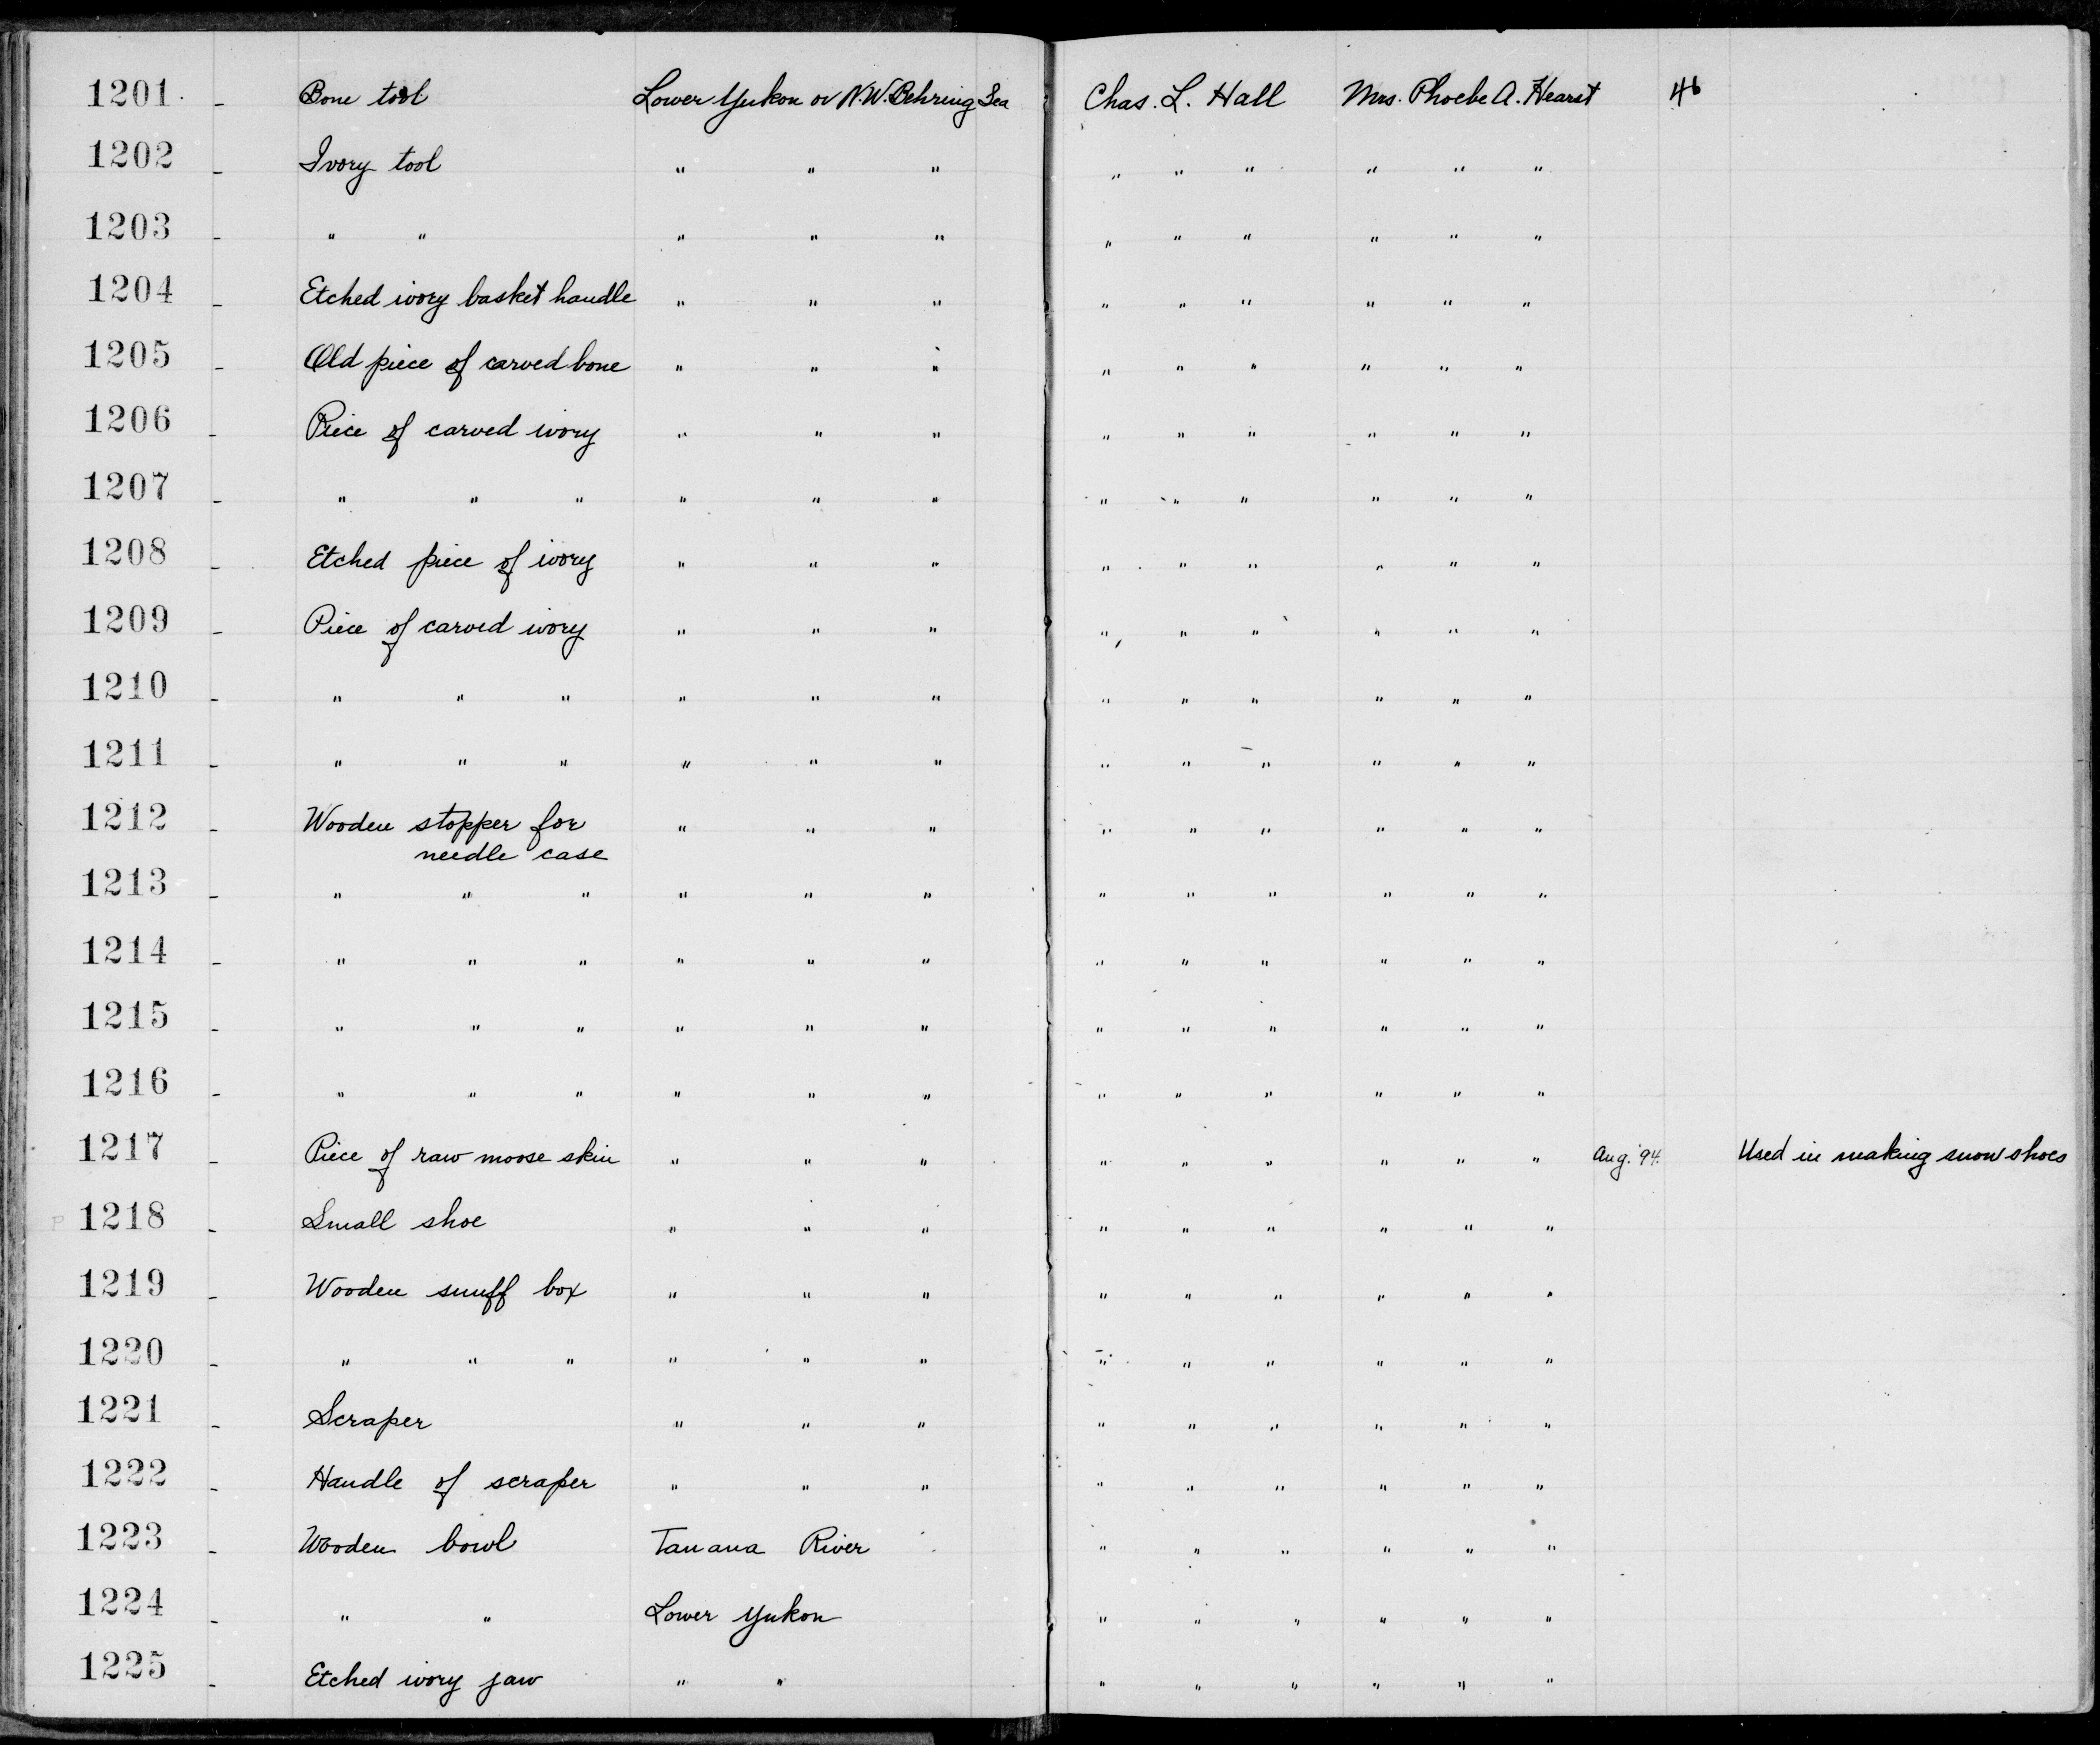 1201 - Bone tool Lower Yukon or N.W. Behring Sea Chas. L. Hall Mrs. Phoebe A. Hearst 46
1202 - Ivory tool " " " " " " " " "
1203 - " " " " " " " " " " "
1204 - Etched ivory basket handle " " " " " " " " "
1205 - Old piece of carved bone " " " " " " " " "
1206 - Piece of carved ivory " " " " " " " " "
1207 - " " " " " " " " " " " "
1208 - Etched piece of ivory " " " " " " " " "
1209 - Piece of carved ivory " " " " " " " " "
1210 - " " " " " " " " " " " "
1211 - " " " " " " " " " " " "
1212 - Wooden stopper for " " " " " " " " "
needle case
1213 - " " " " " " " " " " " "
1214 - " " " " " " " " " " " "
1215 - " " " " " " " " " " " "
1216 - " " " " " " " " " " " "
1217 - Piece of raw moose skin " " " " " " " " " Aug. '94. Used in making snow shoes
P 1218 - Small shoe " " " " " " " " "
1219 - Wooden snuff box " " " " " " " " "
1220 - " " " " " " " " " " " "
1221 - Scraper " " " " " " " " "
1222 - Handle of scraper " " " " " " " " "
1223 - Wooden bowl Tanana River " " " " " "
1224 - " " Lower Yukon " " " " " "
1225 - Etched ivory jaw " " " " " " " "